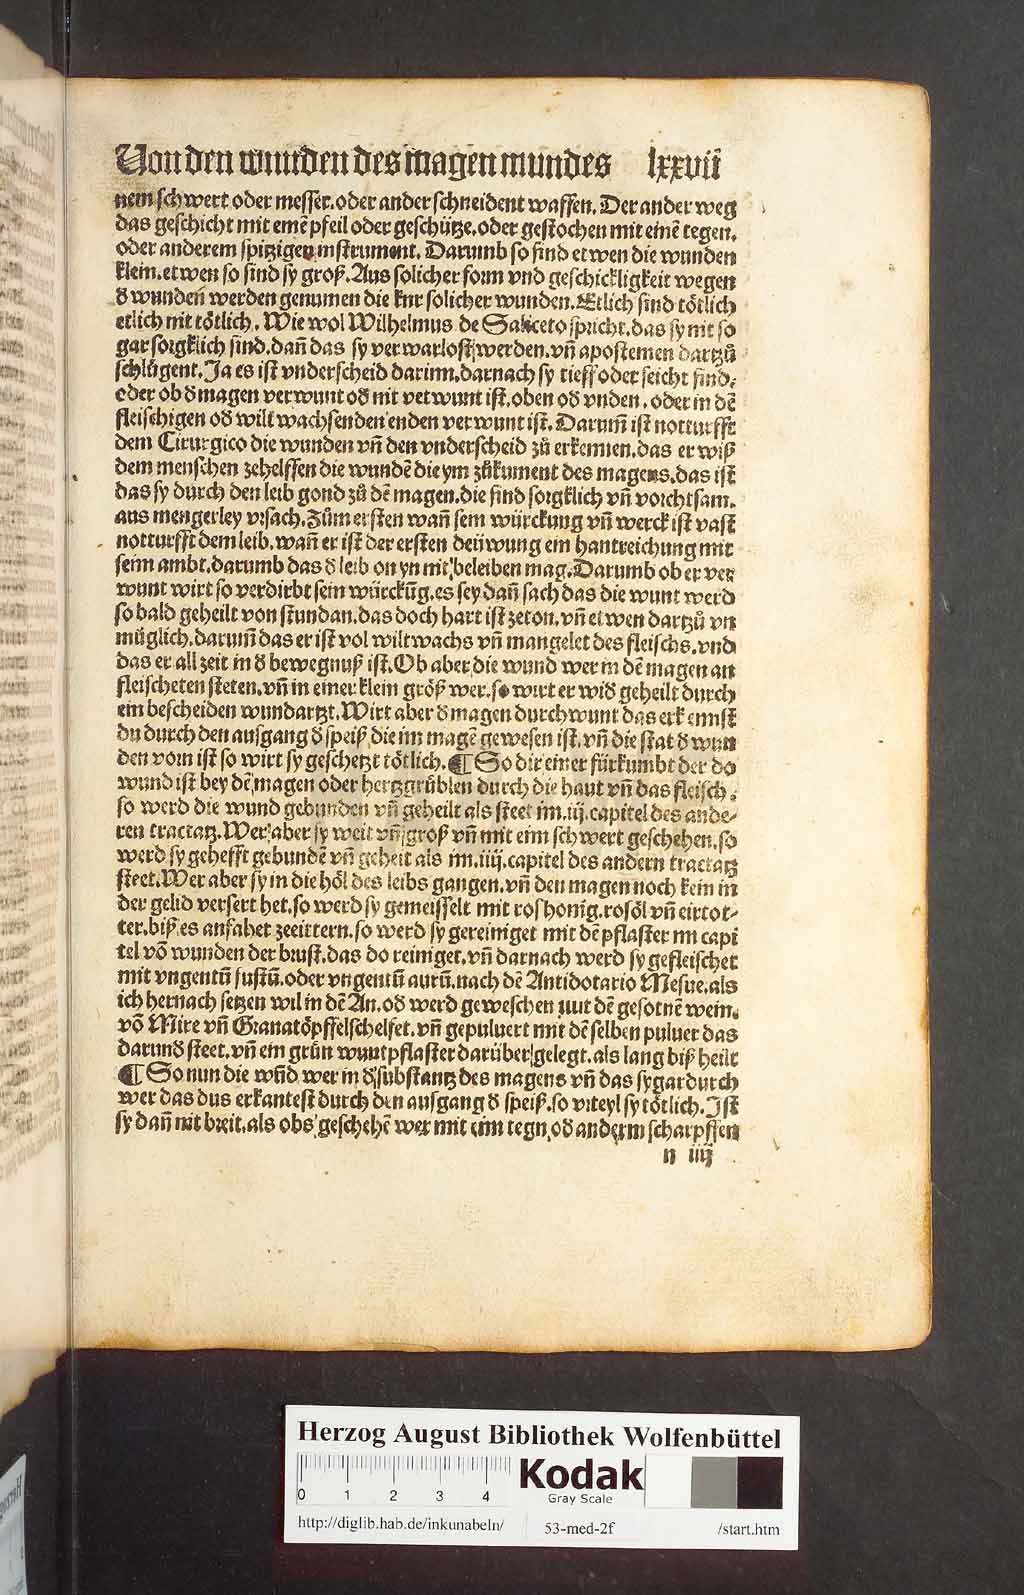 Von den wunden des magen mundes lxxvii
nem schwert oder messer. oder ander schneident waffen. Der ander weg
das geschicht mit emē pfeil oder geschütze. oder gestochen mit einē tegen.
oder anderem spitzigen instrument. Darumb so sind etwen die wunden
klein. etwen so sind sy groß. Aus solicher form vnd geschickligkeit wegen
d wunden werden genumen die kur solicher wunden. Etlich sind tötlich
etlich nit tötlich. Wie wol Wilhelmus de Saliceto spricht. das sy nit so
gar sorgklich sind. dañ das sy verwarlost werden. vñ apostemen dartzů
schlůgent. Ja es ist vnderscheid darinn. darnach sy tieff oder seicht sind.
oder ob d magen verwunt od nit verwunt ist. oben od vnden. oder in dē
fleischigen od wilt wachsenden enden verwunt ist. Darum̄ ist notturfft
dem Cirurgico die wunden vñ den vnderscheid zů erkennen. das er wiß
dem menschen zehelffen die wundē die ym zůkument des magens. das ist
das sy durch den leib gond zů dē magen. die sind sorgklich vñ vorchtsam.
aus mengerley vrsach. Zům ersten wañ sein würckung vñ werck ist vast
notturfft dem leib. wañ er ist der ersten deüwung ein hantreichung mit
seim ambt. darumb das d leib on yn nit beleiben mag. Darumb ob er ver
wunt wirt so verdirbt sein würckūg. es sey dañ sach das die wunt werd
so bald geheilt von stundan. das doch hart ist zeton. vñ etwen dartzů vn
müglich. darum̄ das er ist vol wiltwachs vñ mangelet des fleischs. vnd
das er all zeit in d bewegnuß ist. Ob aber die wund wer in dē magen an
fleischeten steten. vñ in einer klein größ wer. so wirt er wid geheilt durch
ein bescheiden wundartzt. Wirt aber d magen durchwunt das erkennst
du durch den ausgang d speiß die im magē gewesen ist. vñ die stat d wun
den vorn ist so wirt sy geschetzt tötlich. ¶ So dir einer fürkumbt der do
wund ist bey dē magen oder hertzgrüblen durch die haut vñ das fleisch.
so werd die wund gebunden vñ geheilt als steet im. iij. capitel des ande-
ren tractatz. Wer aber sy weit vñ groß vñ mit eim schwert geschehen. so
werd sy gehefft gebundē vñ geheit als im. iiij. capitel des andern tractatz
steet. Wer aber sy in die höl des leibs gangen. vñ den magen noch kein in
der gelid versert het. so werd sy gemeisselt mit roshonig. rosöl vñ eirtot-
ter. biß es anfahet zeeittern. so werd sy gereiniget mit dē pflaster im capi
tel vō wunden der brust. das do reiniget. vñ darnach werd sy gefleischet
mit vngentū fustū. oder vngentū aurū. nach dē Antidotario Mesue. als
ich hernach setzen wil in dē An. od werd geweschen mit dē gesotnē wein.
vō Mire vñ Granatöpffelschelfet. vñ gepuluert mit dē selben puluer das
darund steet. vñ ein grün wuntpflaster darüber gelegt. als lang biß heilt
¶ So nun die wūd wer in d substantz des magens vñ das sy gar durch
wer das dus erkantest durch den ausgang d speiß. so vrteyl sy tötlich. Ist
sy dañ nit breit. als obs geschehē wer mit eim tegn od anderm scharpffen
n iiij
Herzog August Bibliothek Wolfenbüttel
0 1 2 3 4
Kodak
Gray Scale
http://diglib.hab.de/inkunabeln/ 53-med-2f /start.htm